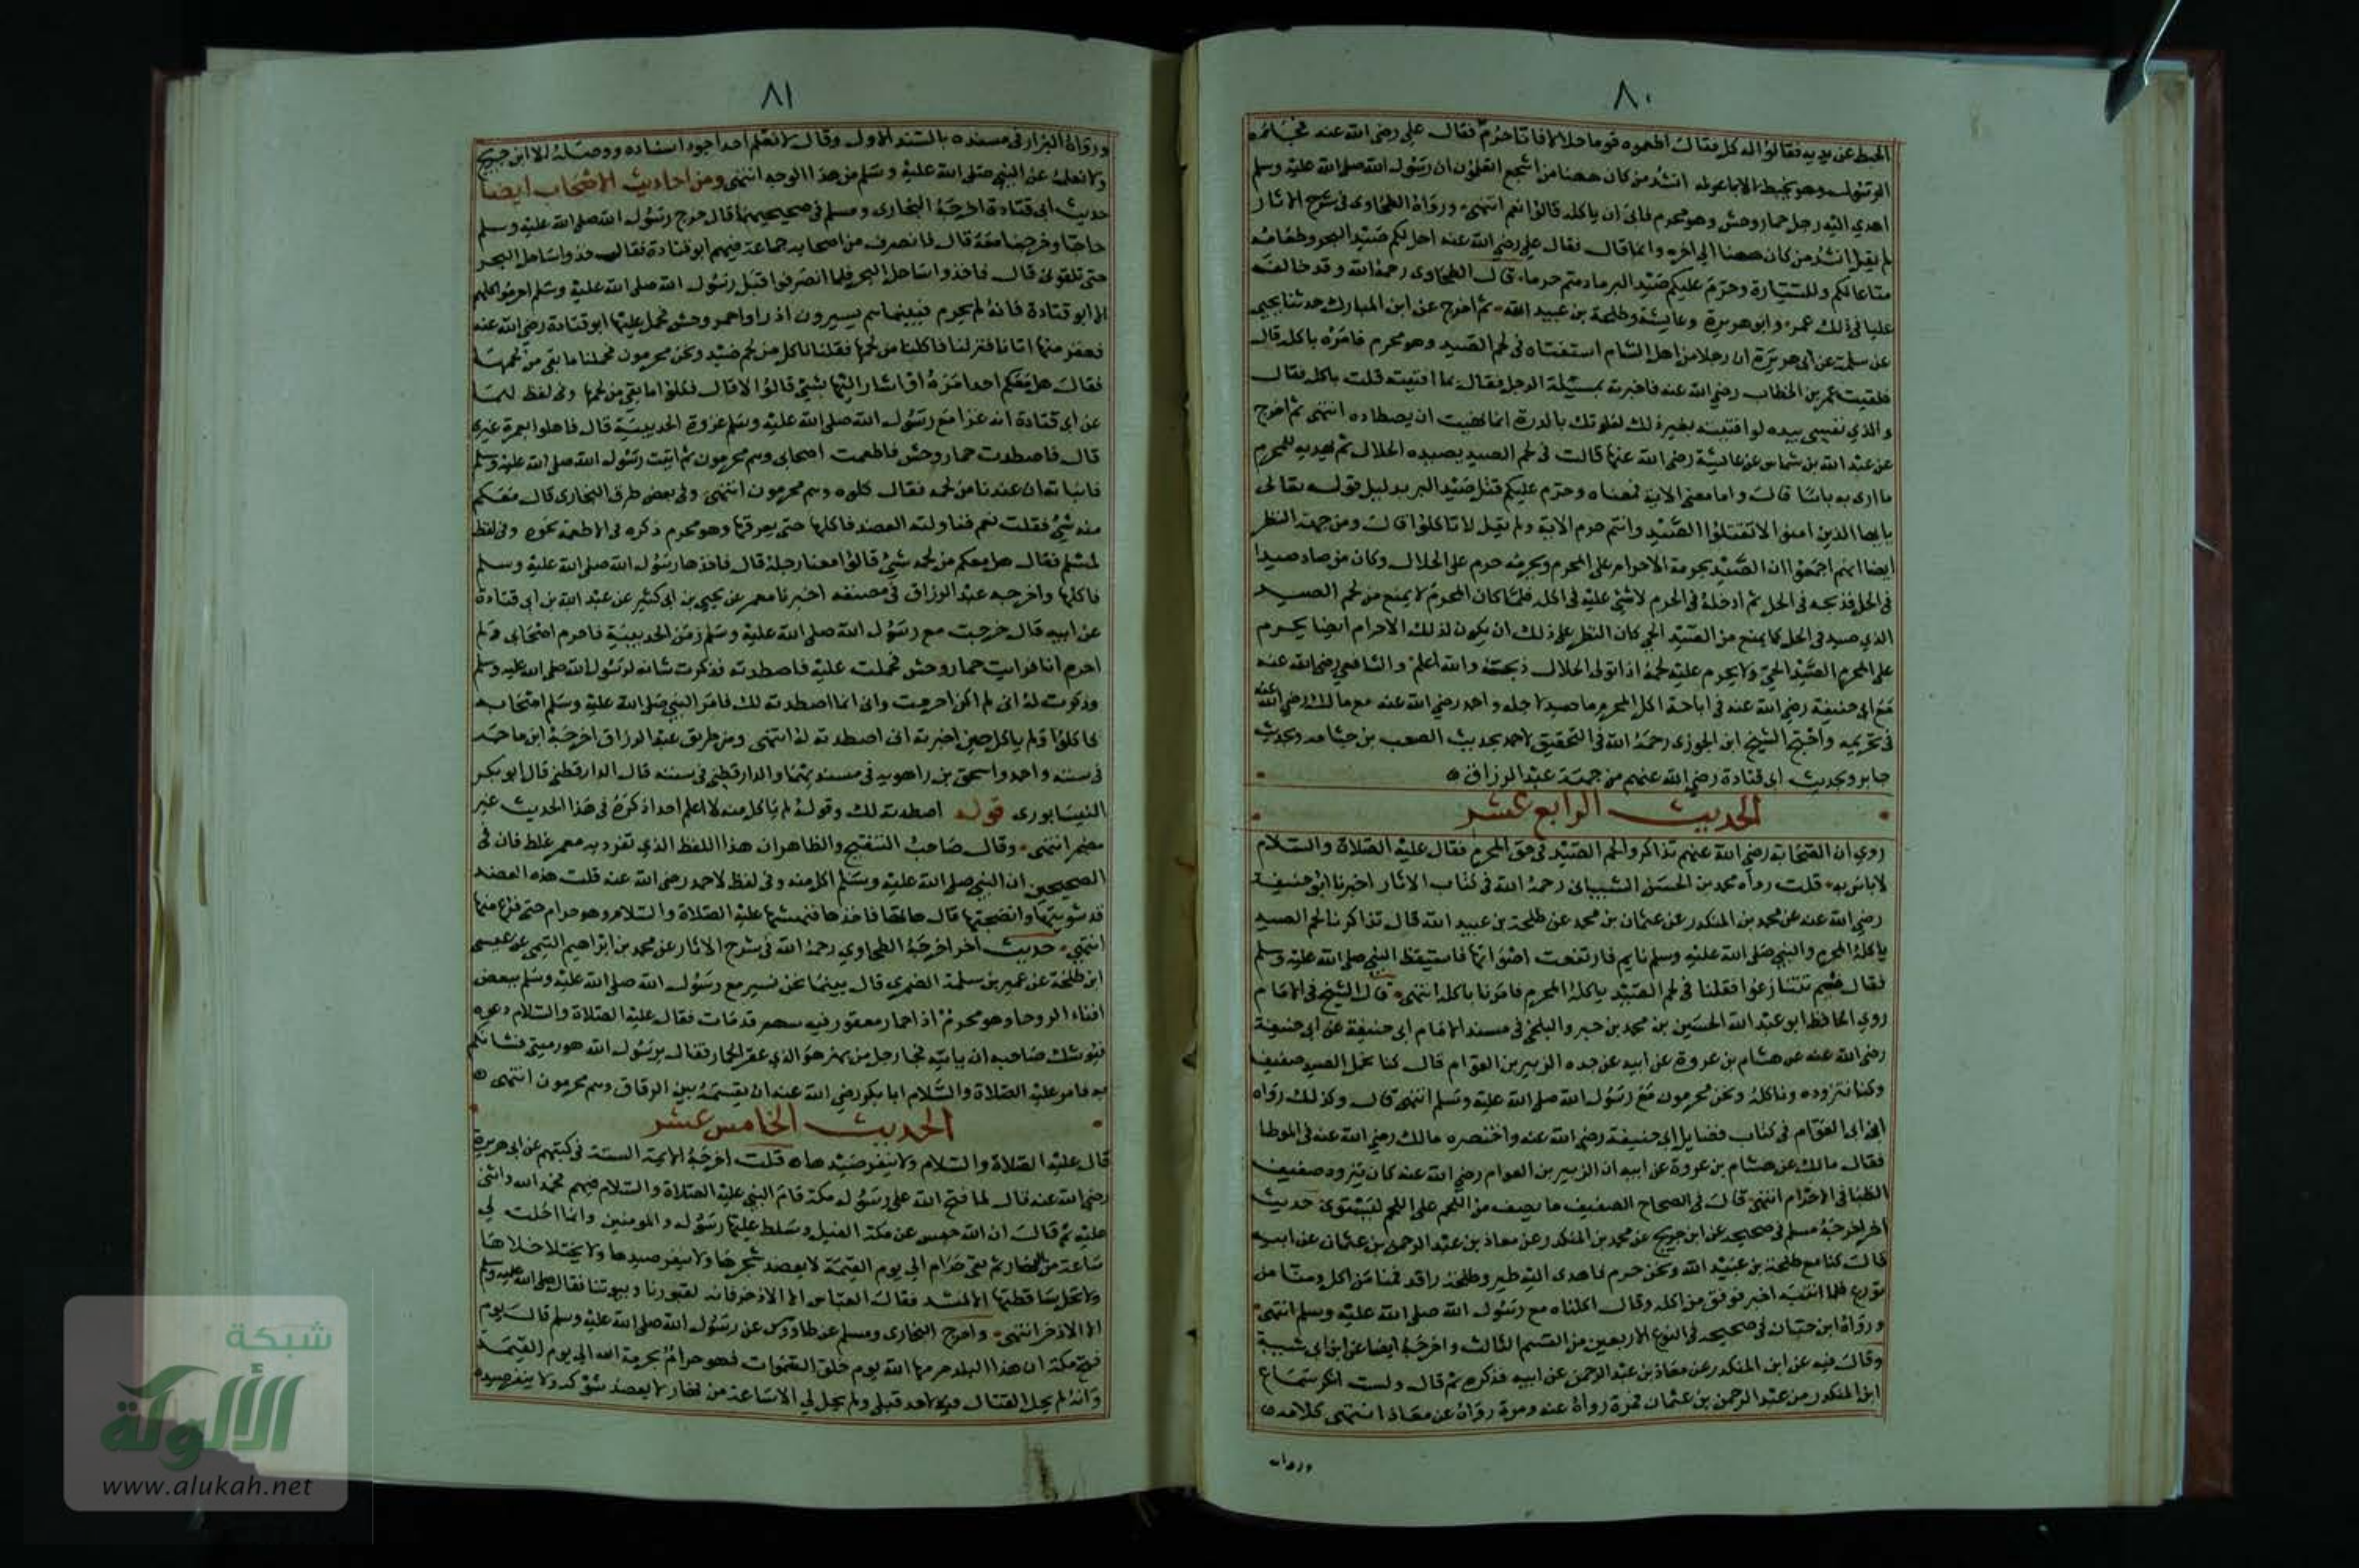 ٨٠
الخبط عن يديه فقالوا له كل فقال اطعموه قوما حلالا فانا حرم فقال علي رضي الله عنه
الرسول وهو يخبط الاباعر له انشد من كان ههنا من اشجع اتعلمون ان رسول الله صلى الله عليه وسلم
اهدي اليه رجل حمار وحش وهو محرم فابى ان ياكله قالوا نعم انتهى ورواه الطحاوى في شرح الاثار
لم يقل انشد من كان ههنا الى اخره وانما قال فقال علي رضي الله عنه احل لكم صيد البحر وطعامه
متاعا لكم وللسيارة وحرم عليكم صيد البر ما دمتم حرما قال الطحاوى رحمه الله وقد خالف
عليا في ذلك عمر وابو هريرة وعايشة وطلحة بن عبيد الله ثم اخرج عن ابن المبارك حدثنا يحيى
عن سلمة عن ابى هريرة ان رجلا من اهل الشام استفتاه في لحم الصيد وهو محرم فامره باكله قال
فلقيت عمر بن الخطاب رضي الله عنه فاخبرته بمسئلة الرجل فقال بما افتيته قلت باكله فقال
والذي نفسي بيده لو افتيته بغير ذلك لعلوتك بالدرة انما نهيت ان يصطاده انتهى ثم اخرج
عن عبد الله بن شماس عن عايشة رضي الله عنها قالت في لحم الصيد يصيده الحلال ثم يهديه للمحرم
ما ارى به باسا قال واما معنى الاية فمعناه وحرم عليكم قتل صيد البر بدليل قوله تعالى
يا ايها الذين امنوا لا تقتلوا الصيد وانتم حرم الاية ولم يقل لا تاكلوا قال ومن جهة النظر
ايضا انهم اجمعوا ان الصيد يحرمه الاحرام على المحرم ويحرمه حرم على الحلال وكان من صاد صيدا
في الحل فذبحه في الحل ثم ادخله في الحرم لا شئ عليه في اكله فلما كان المحرم لا يمنع من لحم الصيد
الذي صيد في الحل كما يمنع من الصيد الحي كان النظر على ذلك ان يكون لذلك الاحرام ايضا يحرم
على المحرم الصيد الحي ولا يحرم عليه لحمه اذا تولى الحلال ذبحه والله اعلم والشافعي رضي الله عنه
مع ابى حنيفة رضي الله عنه في اباحة اكل المحرم ما صيد لاجله واحمد رضي الله عنه مع مالك رضي الله عنه
في تحريمه واحتج الشيخ ابن الجوزى رحمه الله في التحقيق لاحمد بحديث الصعب بن جثامه وبحديث
جابر وبحديث ابى قتادة رضي الله عنهم من جهة عبد الرزاق
الحديث الرابع عشر
روي ان الصحابة رضي الله عنهم تذاكروا لحم الصيد في حق المحرم فقال عليه الصلاة والسلام
لا باس به قلت رواه محمد بن الحسن الشيبانى رحمه الله في كتاب الاثار اخبرنا ابو حنيفة
رضي الله عنه عن محمد بن المنكدر عن عثمان بن محمد عن طلحة بن عبيد الله قال تذاكرنا لحم الصيد
ياكله المحرم والنبي صلى الله عليه وسلم نايم فارتفعت اصواتنا فاستيقظ النبي صلى الله عليه وسلم
فقال فيم تتنازعوا فقلنا في لحم الصيد ياكله المحرم فامرنا باكله انتهى قال الشيخ في الامام
روي الحافظ ابو عبد الله الحسين بن محمد بن خسرو البلخي في مسند الامام ابى حنيفة عن ابى حنيفة
رضي الله عنه عن هشام بن عروة عن ابيه عن جده الزبير بن العوام قال كنا نحمل الصيد صفيفا
وكنا نتزوده وناكله ونحن محرمون مع رسول الله صلى الله عليه وسلم انتهى قال وكذلك رواه
ابن ابى العوام في كتاب فضايل ابى حنيفة رضي الله عنه واختصره مالك رضي الله عنه في الموطا
فقال مالك عن هشام بن عروة عن ابيه ان الزبير بن العوام رضي الله عنه كان يتزود صفيف
الظبا في الاحرام انتهى قال في الصحاح الصفيف ما يصف من اللحم على اللحم لينشوى حديث
اخر اخرجه مسلم في صحيحه عن ابن جريج عن محمد بن المنكدر عن معاذ بن عبد الرحمن بن عثمان عن ابيه
قال كنا مع طلحة بن عبيد الله ونحن حرم فاهدى اليه طير وطلحة راقد فمنا من اكل ومنا من
تورع فلما انتبه اخبر فوفق من اكله وقال اكلناه مع رسول الله صلى الله عليه وسلم انتهى
ورواه ابن حبان في صحيحه في النوع الاربعين من القسم الثالث واخرجه ايضا عن ابن ابى شيبة
وقال فيه عن ابن المنكدر عن معاذ بن عبد الرحمن عن ابيه فذكره ثم قال ولست انكر سماع
ابن المنكدر من عبد الرحمن بن عثمان فمرة رواه عنه ومرة رواه عن معاذ انتهى كلامه
ورواه
٨١
ورواه البزار في مسنده بالسند الاول وقال لا نعلم احدا جود اسناده ووصله الا ابن جريج
ولا نعلمه عن النبي صلى الله عليه وسلم من هذا الوجه انتهى ومن احاديث الاصحاب ايضا
حديث ابى قتادة اخرجه البخارى ومسلم في صحيحيهما قال خرج رسول الله صلى الله عليه وسلم
حاجا وخرجنا معه قال فانصرف من اصحابه جماعة فيهم ابو قتادة فقال خذوا ساحل البحر
حتى تلقونى قال فاخذوا ساحل البحر فلما انصرفوا قبل رسول الله صلى الله عليه وسلم احرموا كلهم
الا ابو قتادة فانه لم يحرم فبينما هم يسيرون اذ راوا حمر وحش فحمل عليها ابو قتادة رضي الله عنه
فعقر منها اتانا فنزلنا فاكلنا من لحمها فقلنا اناكل من لحم صيد ونحن محرمون فحملنا ما بقى من لحمها
فقال هل معكم احد امره او اشار اليها بشئ قالوا لا قال فكلوا ما بقى من لحمها وفي لفظ لهما
عن ابى قتادة انه غزا مع رسول الله صلى الله عليه وسلم غزوة الحديبية قال فاهلوا بعمرة غيرى
قال فاصطدت حمار وحش فاطعمت اصحابى وهم محرمون ثم اتيت رسول الله صلى الله عليه وسلم
فانباته ان عندنا من لحمه فقال كلوه وهم محرمون انتهى وفي بعض طرق البخارى قال معكم
منه شئ فقلت نعم فناولته العضد فاكلها حتى تعرقها وهو محرم ذكره في الاطعمة نحوه وفي لفظ
لمسلم فقال هل معكم من لحمه شئ قالوا معنا رجله قال فاخذها رسول الله صلى الله عليه وسلم
فاكلها واخرجه عبد الرزاق في مصنفه اخبرنا معمر عن يحيى بن ابى كثير عن عبد الله بن ابى قتادة
عن ابيه قال خرجت مع رسول الله صلى الله عليه وسلم زمن الحديبية فاحرم اصحابى ولم
احرم انا فرايت حمار وحش فحملت عليه فاصطدته فذكرت شانه لرسول الله صلى الله عليه وسلم
وذكرت له انى لم اكن احرمت وانى انما اصطدته لك فامر النبي صلى الله عليه وسلم اصحابه
فاكلوا ولم ياكل حين اخبرته انى اصطدته له انتهى ومن طريق عبد الرزاق اخرجه ابن ماجه
في سننه واحمد واسحق بن راهويه في مسنديهما والدارقطني في سننه قال الدارقطني قال ابو بكر
النيسابورى قوله اصطدته لك وقوله لم ياكل منه لا اعلم احدا ذكره في هذا الحديث غير
معمر انتهى وقال صاحب التنقيح والظاهر ان هذا اللفظ الذي تفرد به معمر غلط فان في
الصحيحين ان النبي صلى الله عليه وسلم اكل منه وفي لفظ لاحمد رضي الله عنه قلت هذه العضد
قد شويتها وانضجتها قال هاتها فاخذها فنهشها عليه الصلاة والسلام وهو حرام حتى فرغ منها
انتهى حديث اخر اخرجه الطحاوي رحمه الله في شرح الاثار عن محمد بن ابراهيم التيمى عن عيسى
ابن طلحة عن عمير بن سلمة الضمرى قال بينما نحن نسير مع رسول الله صلى الله عليه وسلم ببعض
افناء الروحا وهو محرم اذا حمار معقور فيه سهم قد مات فقال عليه الصلاة والسلام دعوه
فيوشك صاحبه ان ياتيه فجا رجل من بهز هو الذي عقر الحمار فقال يرسول الله هو رميتى فشانكم
به فامر عليه الصلاة والسلام ابا بكر رضي الله عنه ان يقسمه بين الرفاق وهم محرمون انتهى
الحديث الخامس عشر
قال عليه الصلاة والسلام ولا ينفر صيدها قلت اخرجه الايمة الستة في كتبهم عن ابى هريرة
رضي الله عنه قال لما فتح الله على رسوله مكة قام النبي عليه الصلاة والسلام فيهم فحمد الله واثنى
عليه ثم قال ان الله حبس عن مكة الفيل وسلط عليها رسوله والمومنين وانما احلت لي
ساعة من النهار ثم هى حرام الي يوم القيمة لا يعضد شجرها ولا ينفر صيدها ولا يختلا خلاها
ولا تحل ساقطتها الا لمنشد فقال العباس الا الاذخر فانه لقبورنا وبيوتنا فقال صلى الله عليه وسلم
الا الاذخر انتهى واخرج البخارى ومسلم عن طاووس عن رسول الله صلى الله عليه وسلم قال يوم
فتح مكة ان هذا البلد حرمها الله يوم خلق السموات فهو حرام بحرمة الله الى يوم القيمة
وانه لم يحل القتال فيه لاحد قبلى ولم يحل لي الا ساعة من نهار لا يعضد شوكه ولا ينفر صيده
شبكة
الألوكة
www.alukah.net